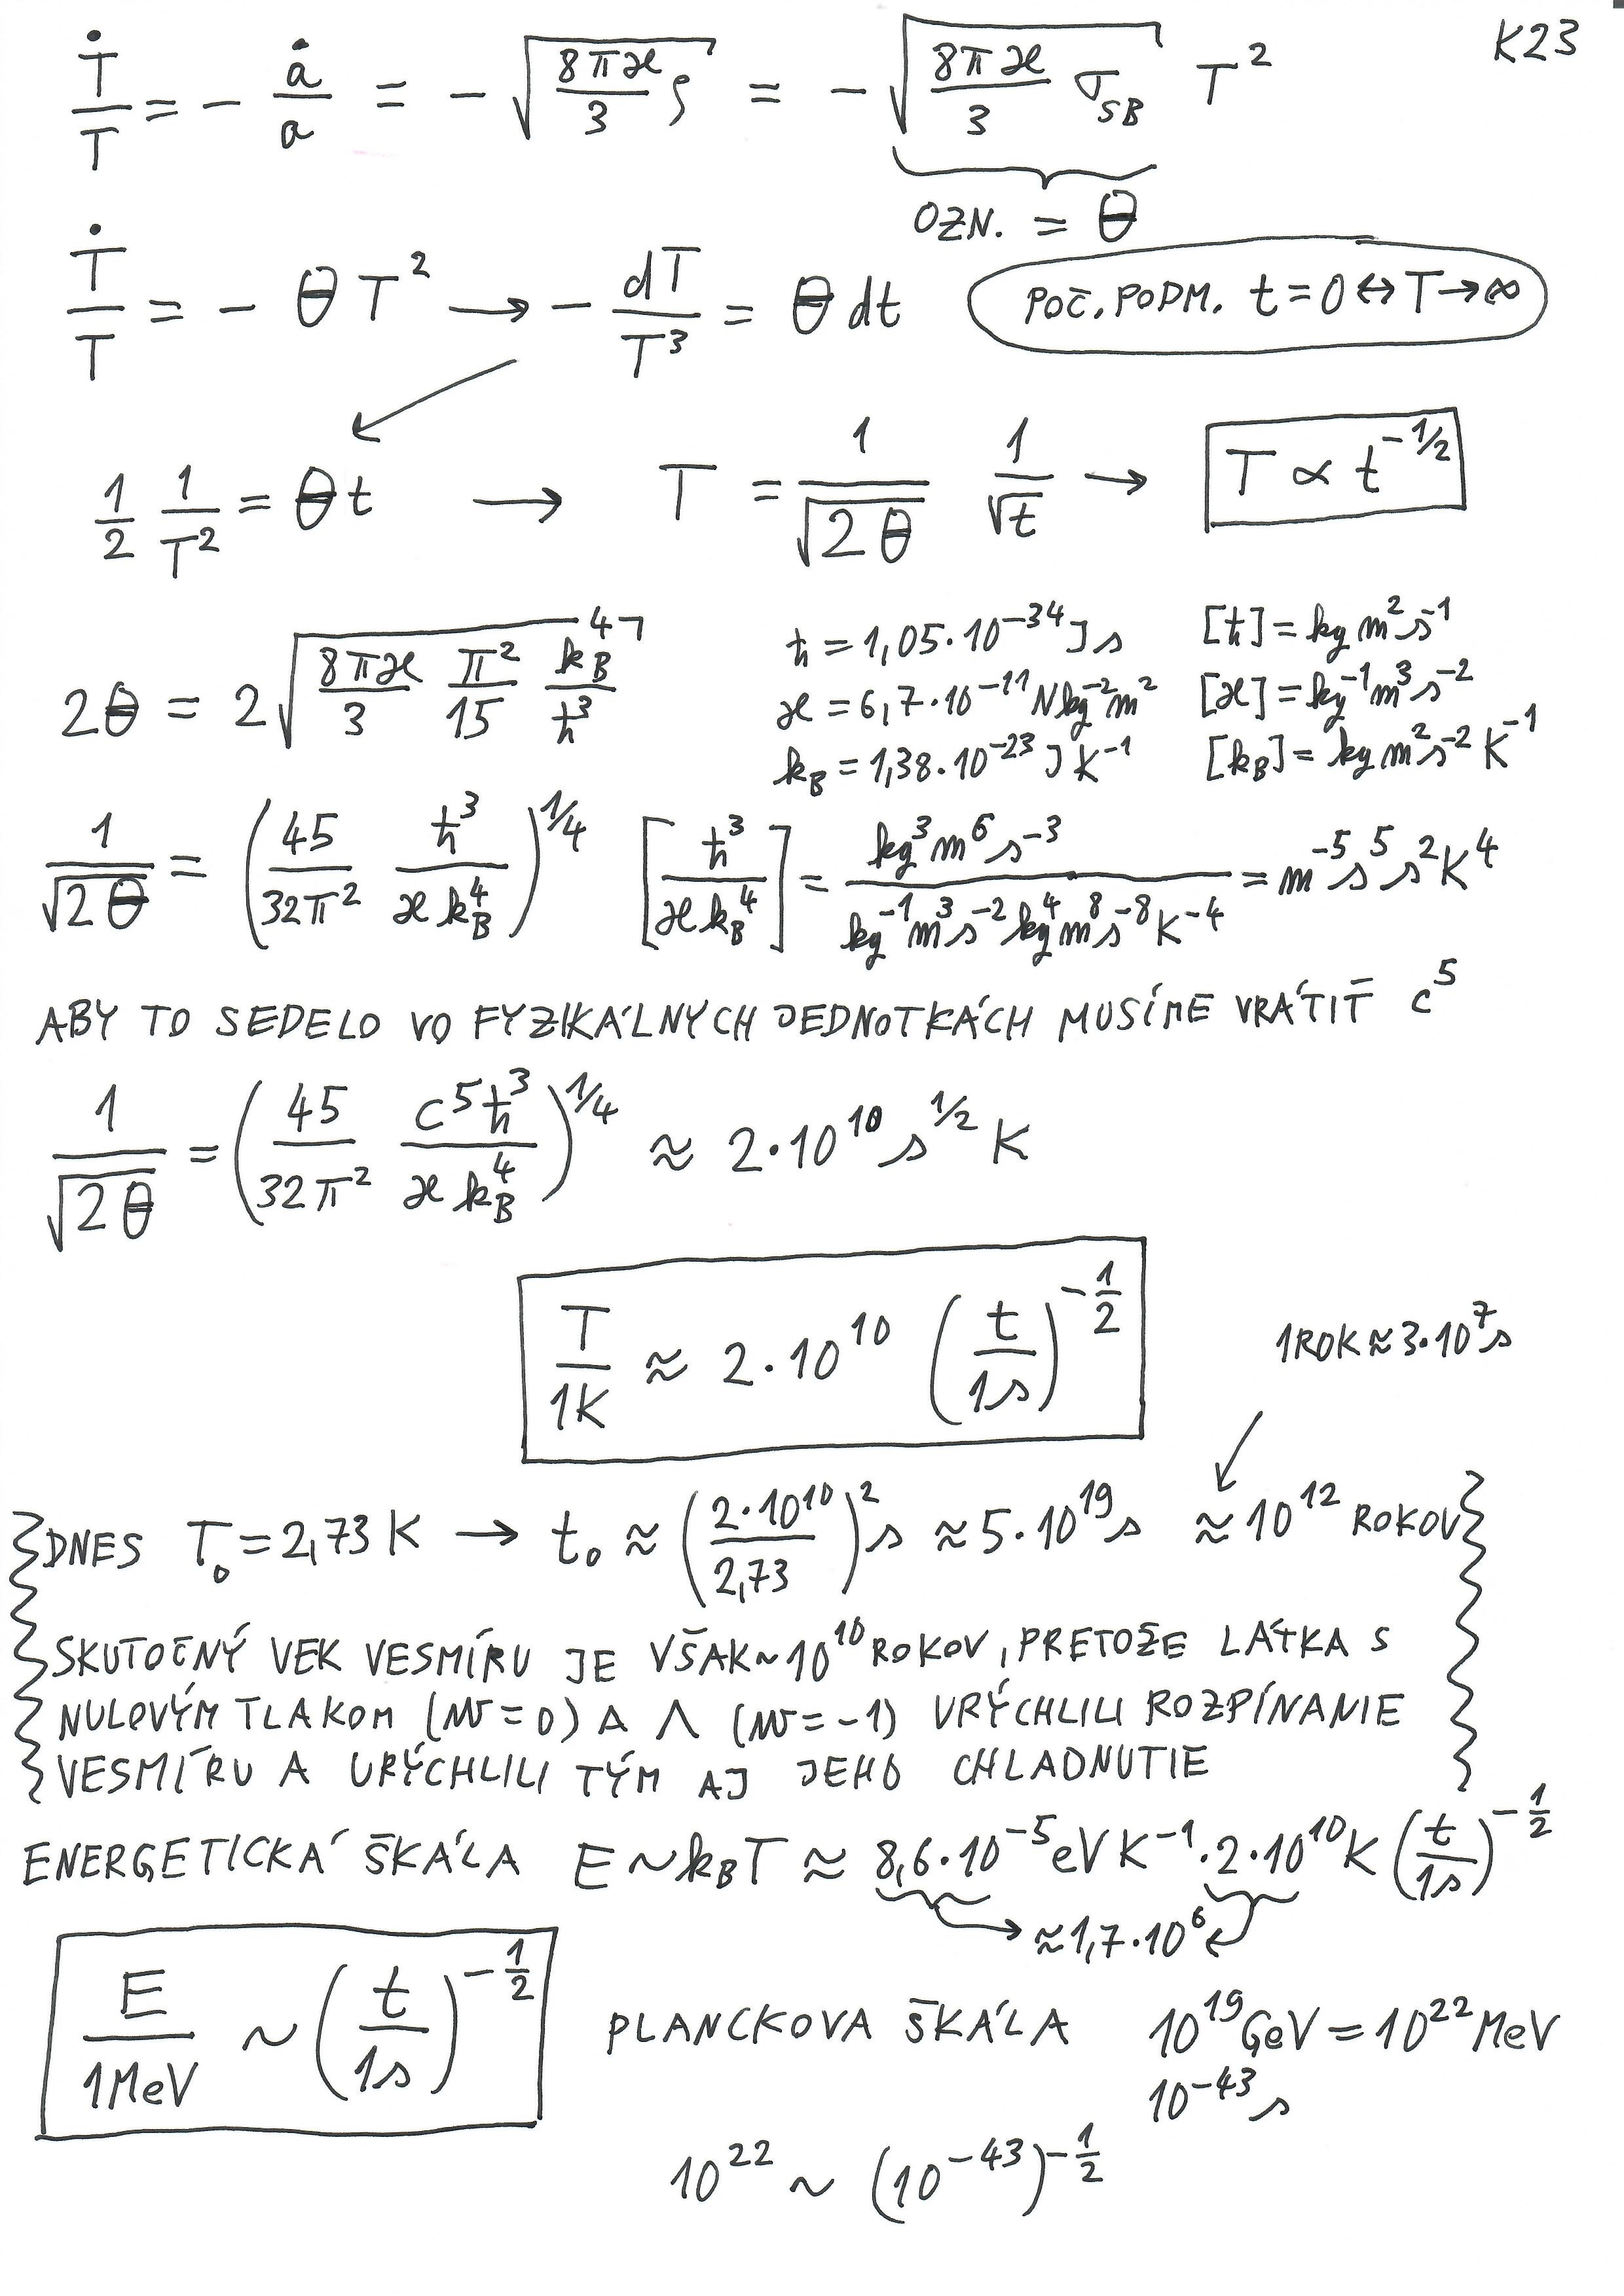 K23
Ṫ/T = - ȧ/a = - √(8πϰ/3 ρ) = - √(8πϰ/3 σ_SB) T²
OZN. = Θ
Ṫ/T = - Θ T² → - dT/T³ = Θ dt   POČ. PODM. t = 0 ↔ T → ∞
1/2 1/T² = Θ t → T = 1/√(2Θ) 1/√t → T ∝ t^(-1/2)
2Θ = 2 √(8πϰ/3 π²/15 k_B⁴/ħ³)
ħ = 1,05·10^(-34) J s   [ħ] = kg m² s^(-1)
ϰ = 6,7·10^(-11) N kg^(-2) m²   [ϰ] = kg^(-1) m³ s^(-2)
k_B = 1,38·10^(-23) J K^(-1)   [k_B] = kg m² s^(-2) K^(-1)
1/√(2Θ) = (45/32π² ħ³/ϰ k_B⁴)^(1/4)   [ħ³/ϰ k_B⁴] = kg³ m⁶ s^(-3) / kg^(-1) m³ s^(-2) kg⁴ m⁸ s^(-8) K^(-4) = m^(-5) s⁵ s² K⁴
ABY TO SEDELO VO FYZIKÁLNYCH JEDNOTKÁCH MUSÍME VRÁTIŤ c⁵
1/√(2Θ) = (45/32π² c⁵ħ³/ϰ k_B⁴)^(1/4) ≈ 2·10^10 s^(1/2) K
T/1K ≈ 2·10^10 (t/1s)^(-1/2)
1 ROK ≈ 3·10⁷ s
DNES T₀ = 2,73 K → t₀ ≈ (2·10^10/2,73)² s ≈ 5·10^19 s ≈ 10^12 ROKOV
SKUTOČNÝ VEK VESMÍRU JE VŠAK ~ 10^10 ROKOV, PRETOŽE LÁTKA S
NULOVÝM TLAKOM (w = 0) A Λ (w = -1) URÝCHLILI ROZPÍNANIE
VESMÍRU A URÝCHLILI TÝM AJ JEHO CHLADNUTIE
ENERGETICKÁ ŠKÁLA E ~ k_B T ≈ 8,6·10^(-5) eV K^(-1)·2·10^10 K (t/1s)^(-1/2)
≈ 1,7·10⁶
E/1MeV ~ (t/1s)^(-1/2)
PLANCKOVA ŠKÁLA 10^19 GeV = 10^22 MeV
10^(-43) s
10^22 ~ (10^(-43))^(-1/2)